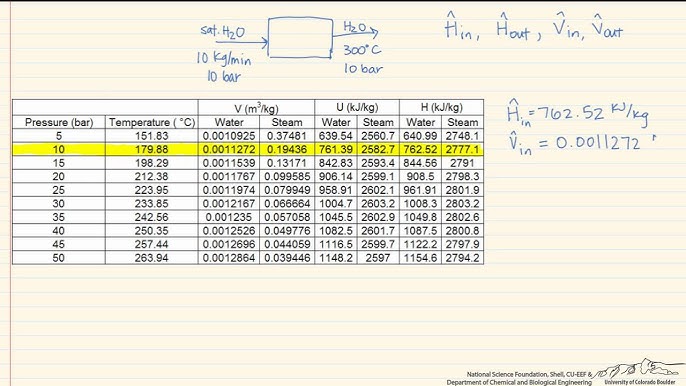 sat. H₂O
10 kg/min
10 bar
H₂O
300°C
10 bar
Ĥin, Ĥout, V̂in, V̂out
V (m³/kg) U (kJ/kg) H (kJ/kg)
Pressure (bar) Temperature (°C) Water Steam Water Steam Water Steam
5 151.83 0.0010925 0.37481 639.54 2560.7 640.99 2748.1
10 179.88 0.0011272 0.19436 761.39 2582.7 762.52 2777.1
15 198.29 0.0011539 0.13171 842.83 2593.4 844.56 2791
20 212.38 0.0011767 0.099585 906.14 2599.1 908.5 2798.3
25 223.95 0.0011974 0.079949 958.91 2602.1 961.91 2801.9
30 233.85 0.0012167 0.066664 1004.7 2603.2 1008.3 2803.2
35 242.56 0.001235 0.057058 1045.5 2602.9 1049.8 2802.6
40 250.35 0.0012526 0.049776 1082.5 2601.7 1087.5 2800.8
45 257.44 0.0012696 0.044059 1116.5 2599.7 1122.2 2797.9
50 263.94 0.0012864 0.039446 1148.2 2597 1154.6 2794.2
Ĥin = 762.52 kJ/kg
V̂in = 0.0011272
National Science Foundation, Shell, CU-EEF &
Department of Chemical and Biological Engineering
University of Colorado Boulder